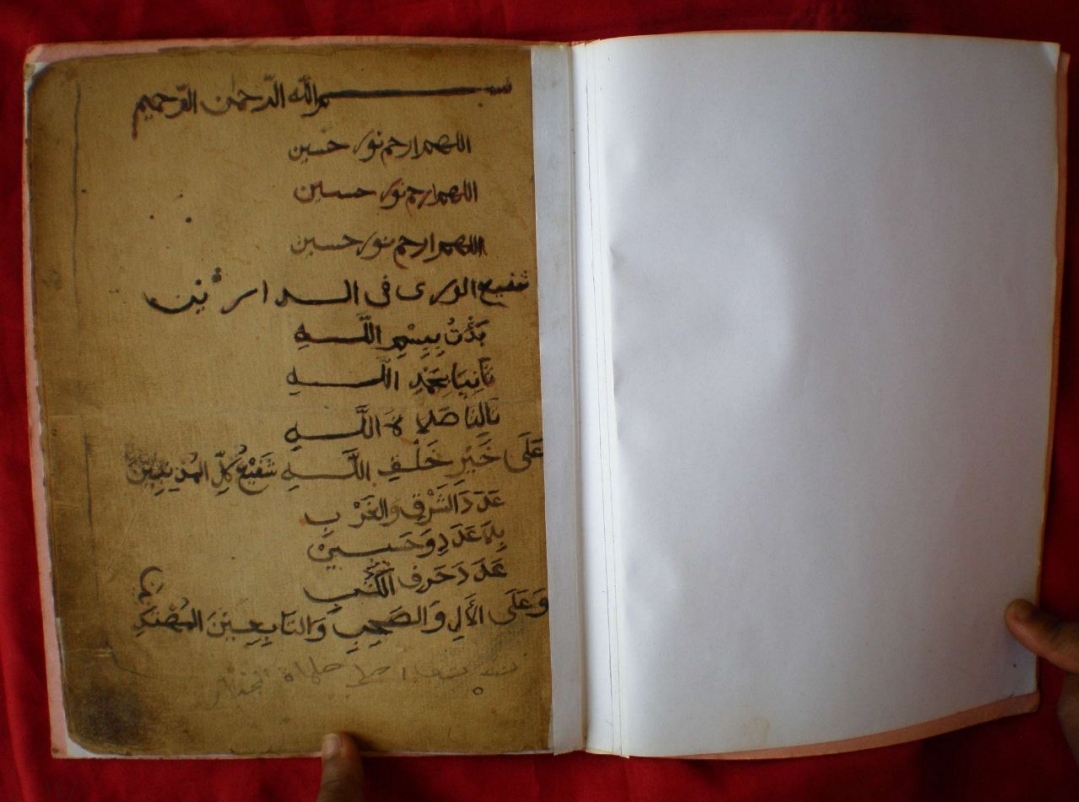 بسم الله الرحمن الرحيم
اللهم ارحم نور حسين
اللهم ارحم نور حسين
اللهم ارحم نور حسين
شفيع الورى في الدارين
بَدَْتُ بِبِسْمِ اللَّهِ
ثَانِيَا بِحَمْدِ اللَّهِ
ثَالِثَا صَلَاةَ اللَّهِ
عَلَى خَيْرِ خَلْقِ اللَّهِ شَفِيْعِ كُلِّ المُذنِبِيْنَ
عَدَدَ الشَّرْقِ وَالغَرْبِ
بِلَا عَدَدِ وَحَسِبِيْنَ
عَدَدَ حَرفِ الكُتُبِ
وَعَلَى الأَلِ وَالصَّحبِ وَالتَّابِعِيْنَ المُهْتَدِين